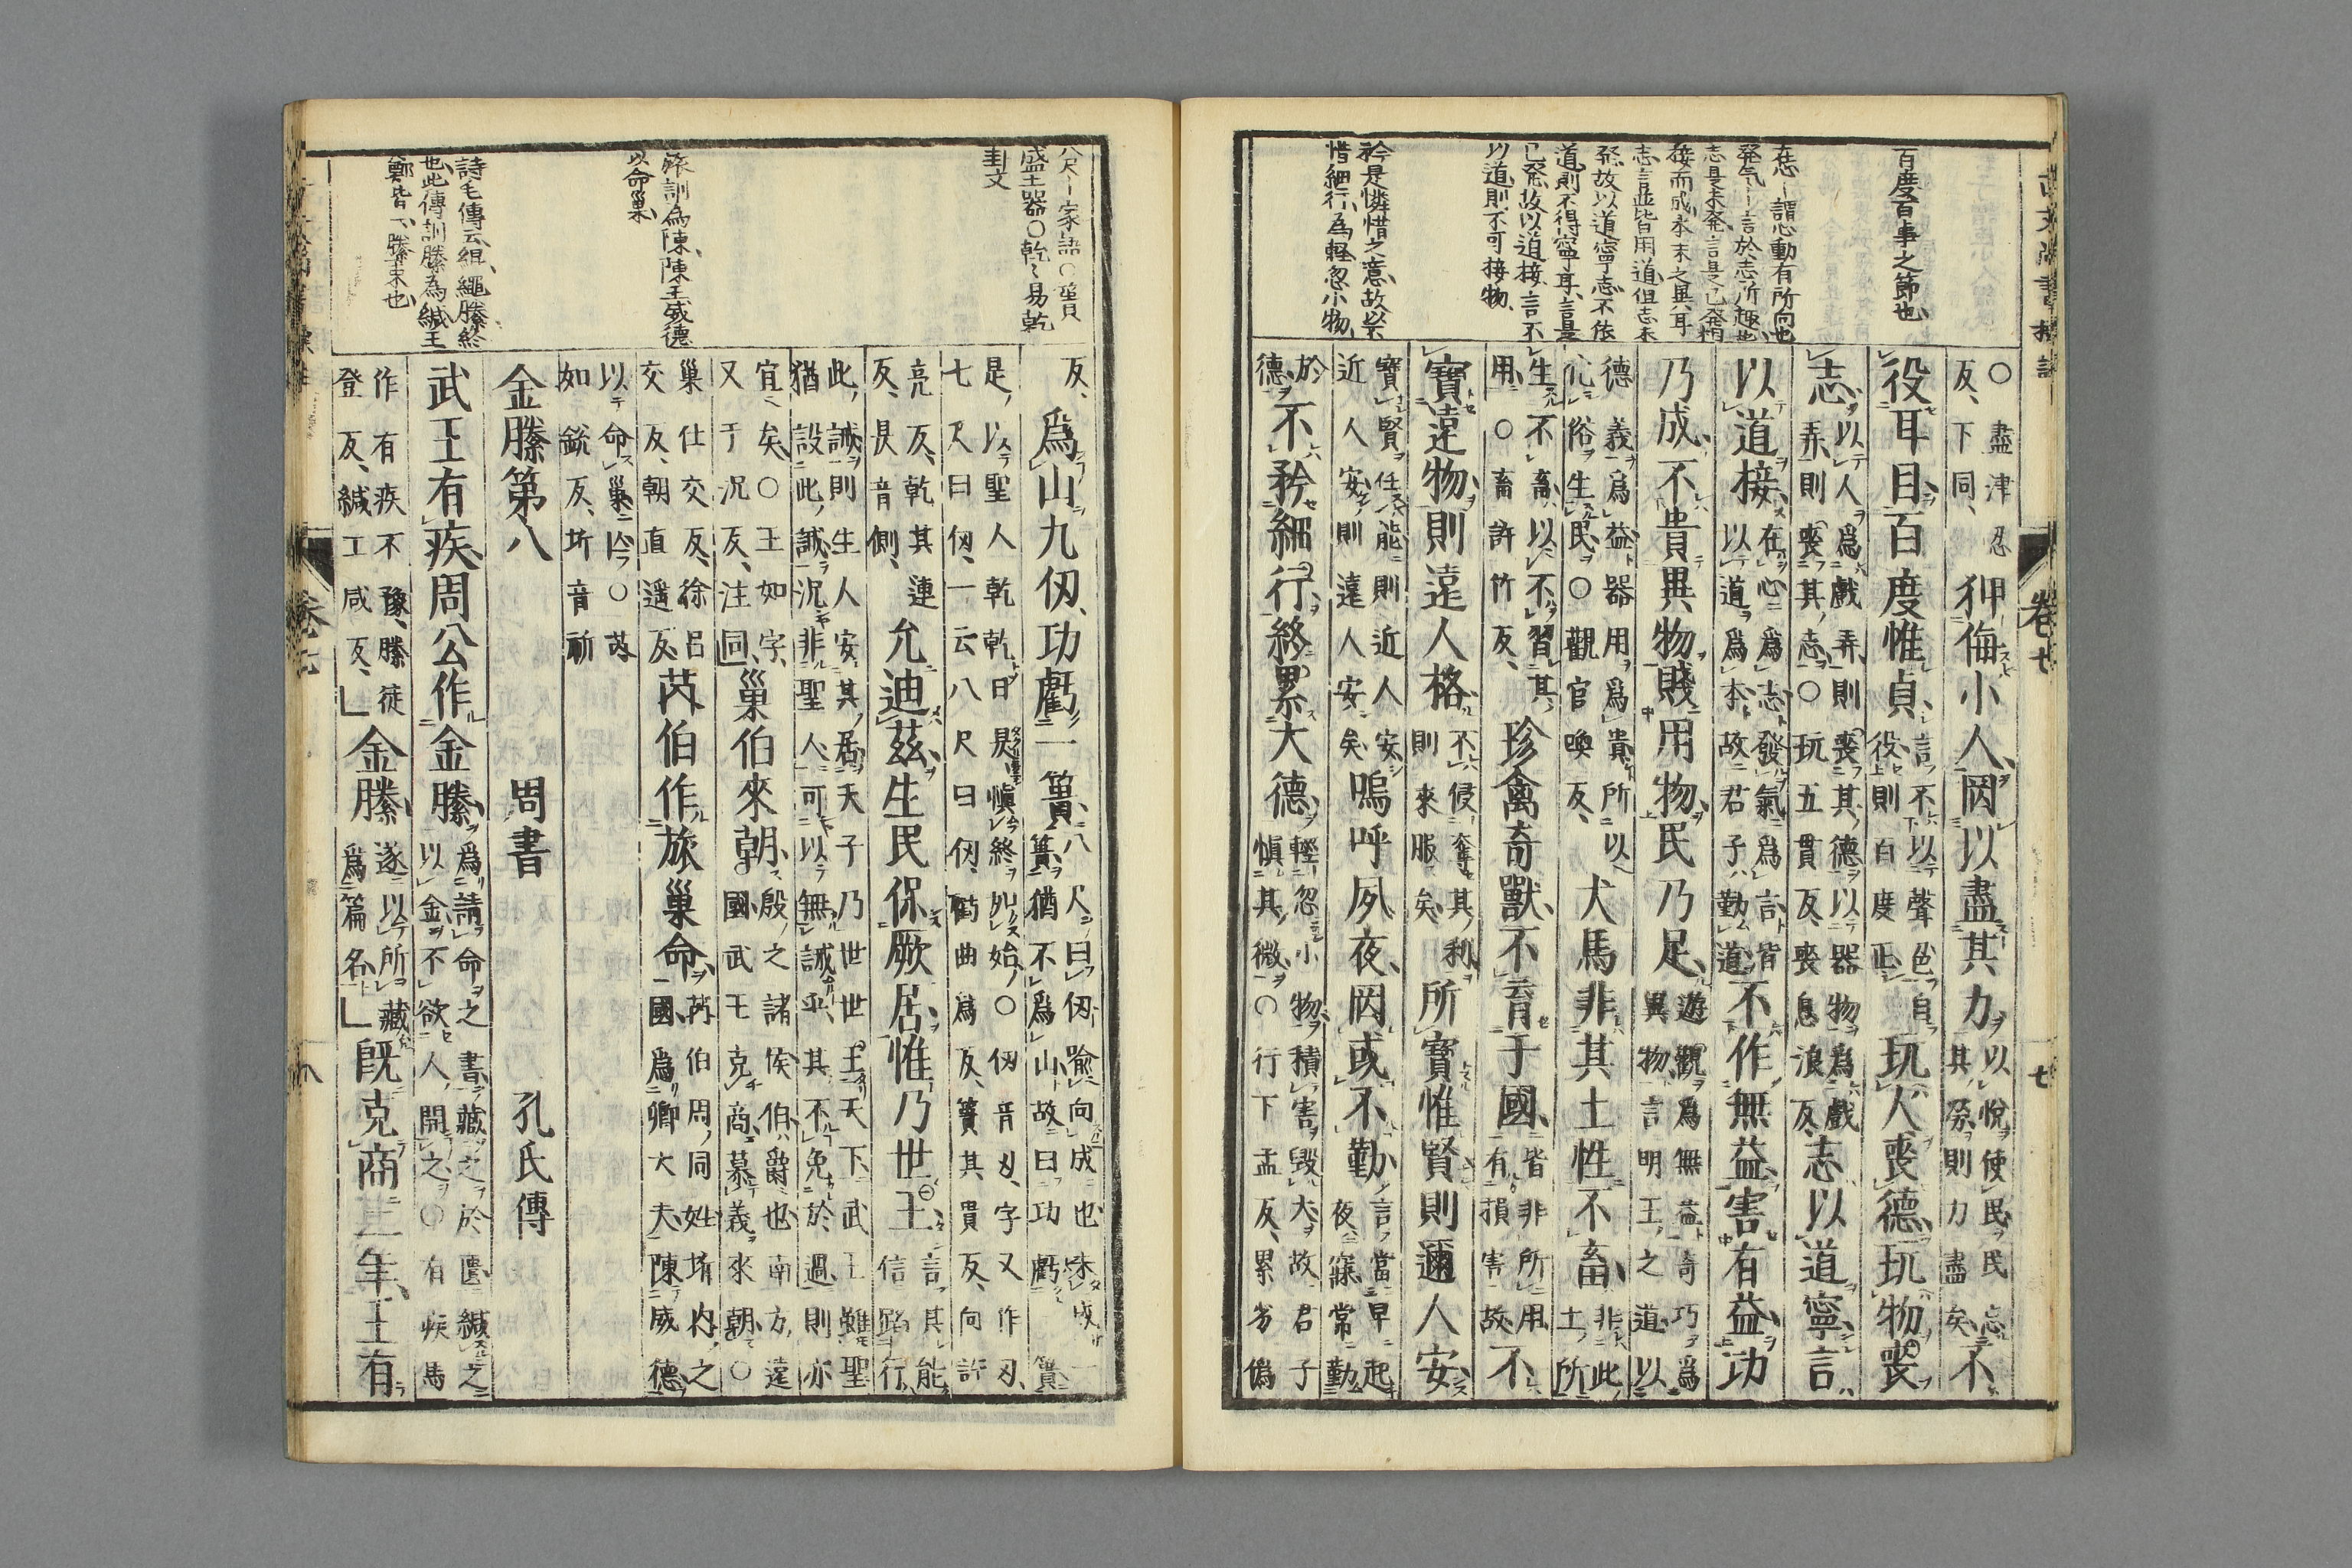 百度百事之節也
在志丨謂志動有所向也
発気丨言於志所趣也
志是未発言是已発相
接而成本末之異耳
志言並皆用道但志未
発故以道寧志不依
道則不得寧耳言是
已発故以道接言不
以道則不可接物
矜是憐惜之意故以不
惜細行為軽忽小物
〇盡津忍
反下同
狎侮小人罔以盡其力
以悅使民民忘
其勞則力盡矣
不
役耳目百度惟貞
言不以聲色自
役則百度正
玩人喪德玩物喪
志
以人爲戲弄則喪其德以器物爲戲
弄則喪其志〇玩五貫反喪息浪反
志以道寧言
以道接
在心爲志發氣爲言皆
以道爲本故君子勤道
不作無益害有益功
乃成不貴異物賤用物民乃足
遊觀爲無益奇巧爲
異物言明王之道以
德義爲益器用爲貴所以
化俗生民〇觀官喚反
犬馬非其土性不畜
非此土所
生不畜以不習其
用〇畜許竹反
珍禽奇獸不育于國
皆非所用
有損害故
不
寶遠物則遠人格
不侵奪其利
則來服矣
所寶惟賢則邇人安
寶賢任能則近人安
近人安則遠人安矣
嗚呼夙夜罔或不勤
言當早起
夜寐常勤
於
德
不矜細行終累大德
輕忽小物積害毀大故君子
慎其微〇行下孟反累劣偽
八尺丨家語〇簣
盛土器〇乾〻易乾
卦文
旅訓為陳陳王威德
以命巢
詩毛傳云緄繩縢終
也此傳訓縢為緘王
鄭皆云縢束也
反
爲山九仞功虧一簣
八尺曰仞喻向成也未成一
簣猶不爲山故曰功虧 簣
是以聖人乾乾日昃慎終如始〇仞音刃字又作刃
七尺曰仞一云八尺曰仞虧曲爲反簣其貴反向許
亮反乾其連
反昃音側
允迪茲生民保厥居惟乃世王
言其能
信蹈行
此誡則生人安其居天子乃世世王天下武王雖聖
猶設此誡況非聖人可以無誡乎其不免於過則亦
宜矣〇王如字
又于況反注同
巢伯來朝
殷之諸侯伯爵也南方遠
國武王克商慕義來朝〇
巢仕交反徐呂
交反朝直遥反
芮伯作旅巢命
芮伯周同姓圻內之
國爲卿大夫陳威德
以命巢亡〇芮
如銳反圻音祈
金縢第八　周書　孔氏傳
武王有疾周公作金縢
爲請命之書藏之於匱緘之
以金不欲人開之〇有疾馬
作有疾不豫縢徒
登反緘工咸反
金縢
遂以所藏
爲篇名
既克商二年王有